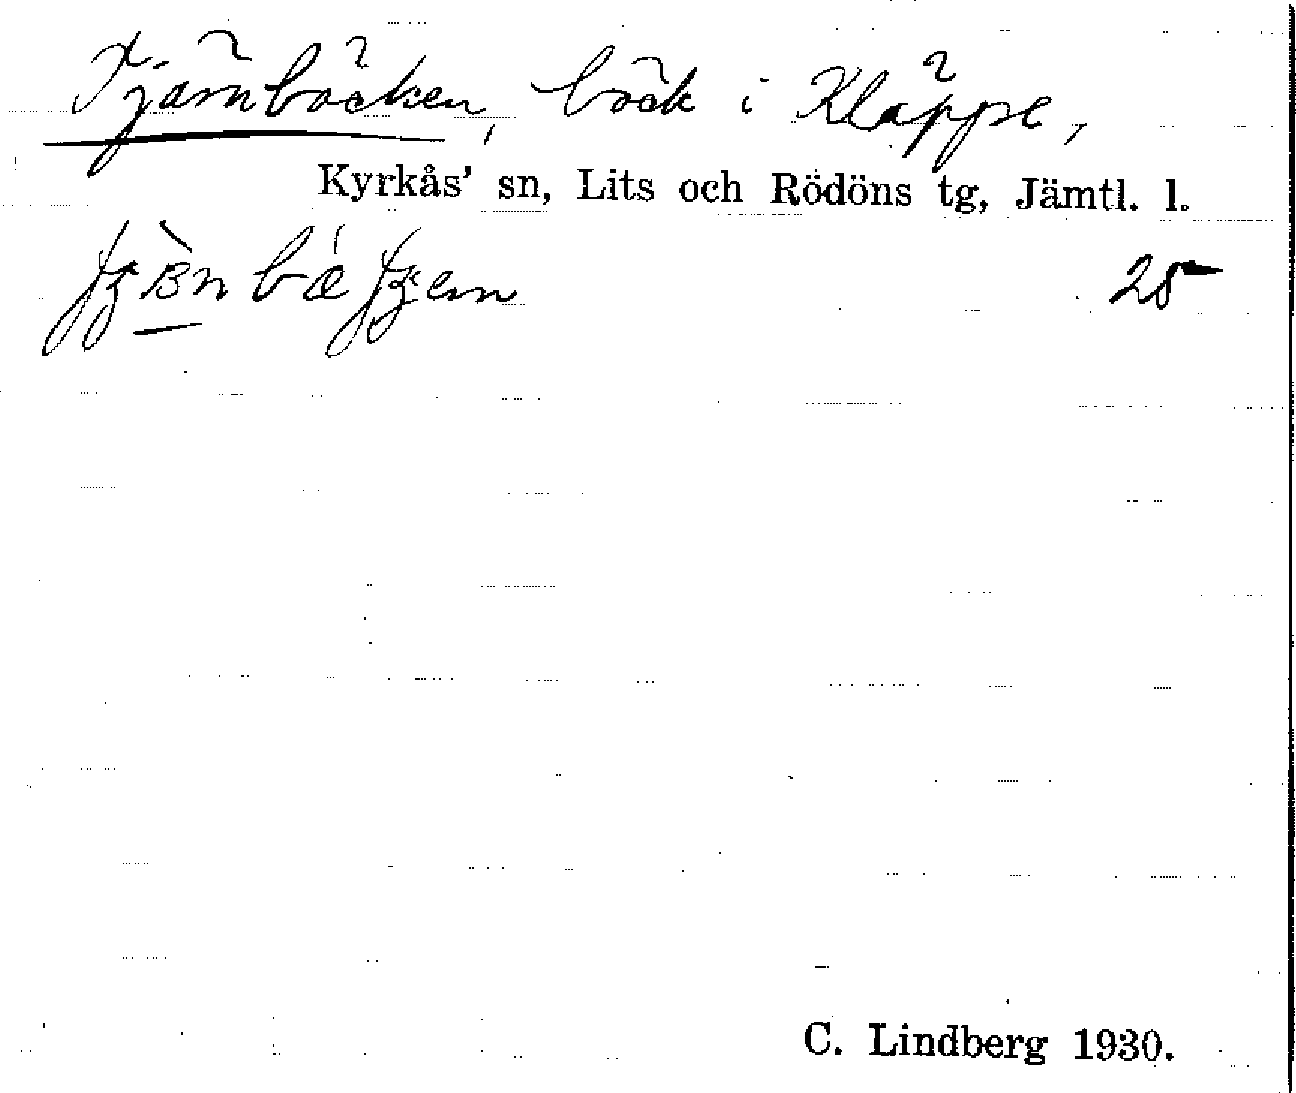 Tjärnbäcken, bäck i Kläppe,
Kyrkås' sn, Lits och Rödöns tg, Jämtl. l.
25
C. Lindberg 1930.